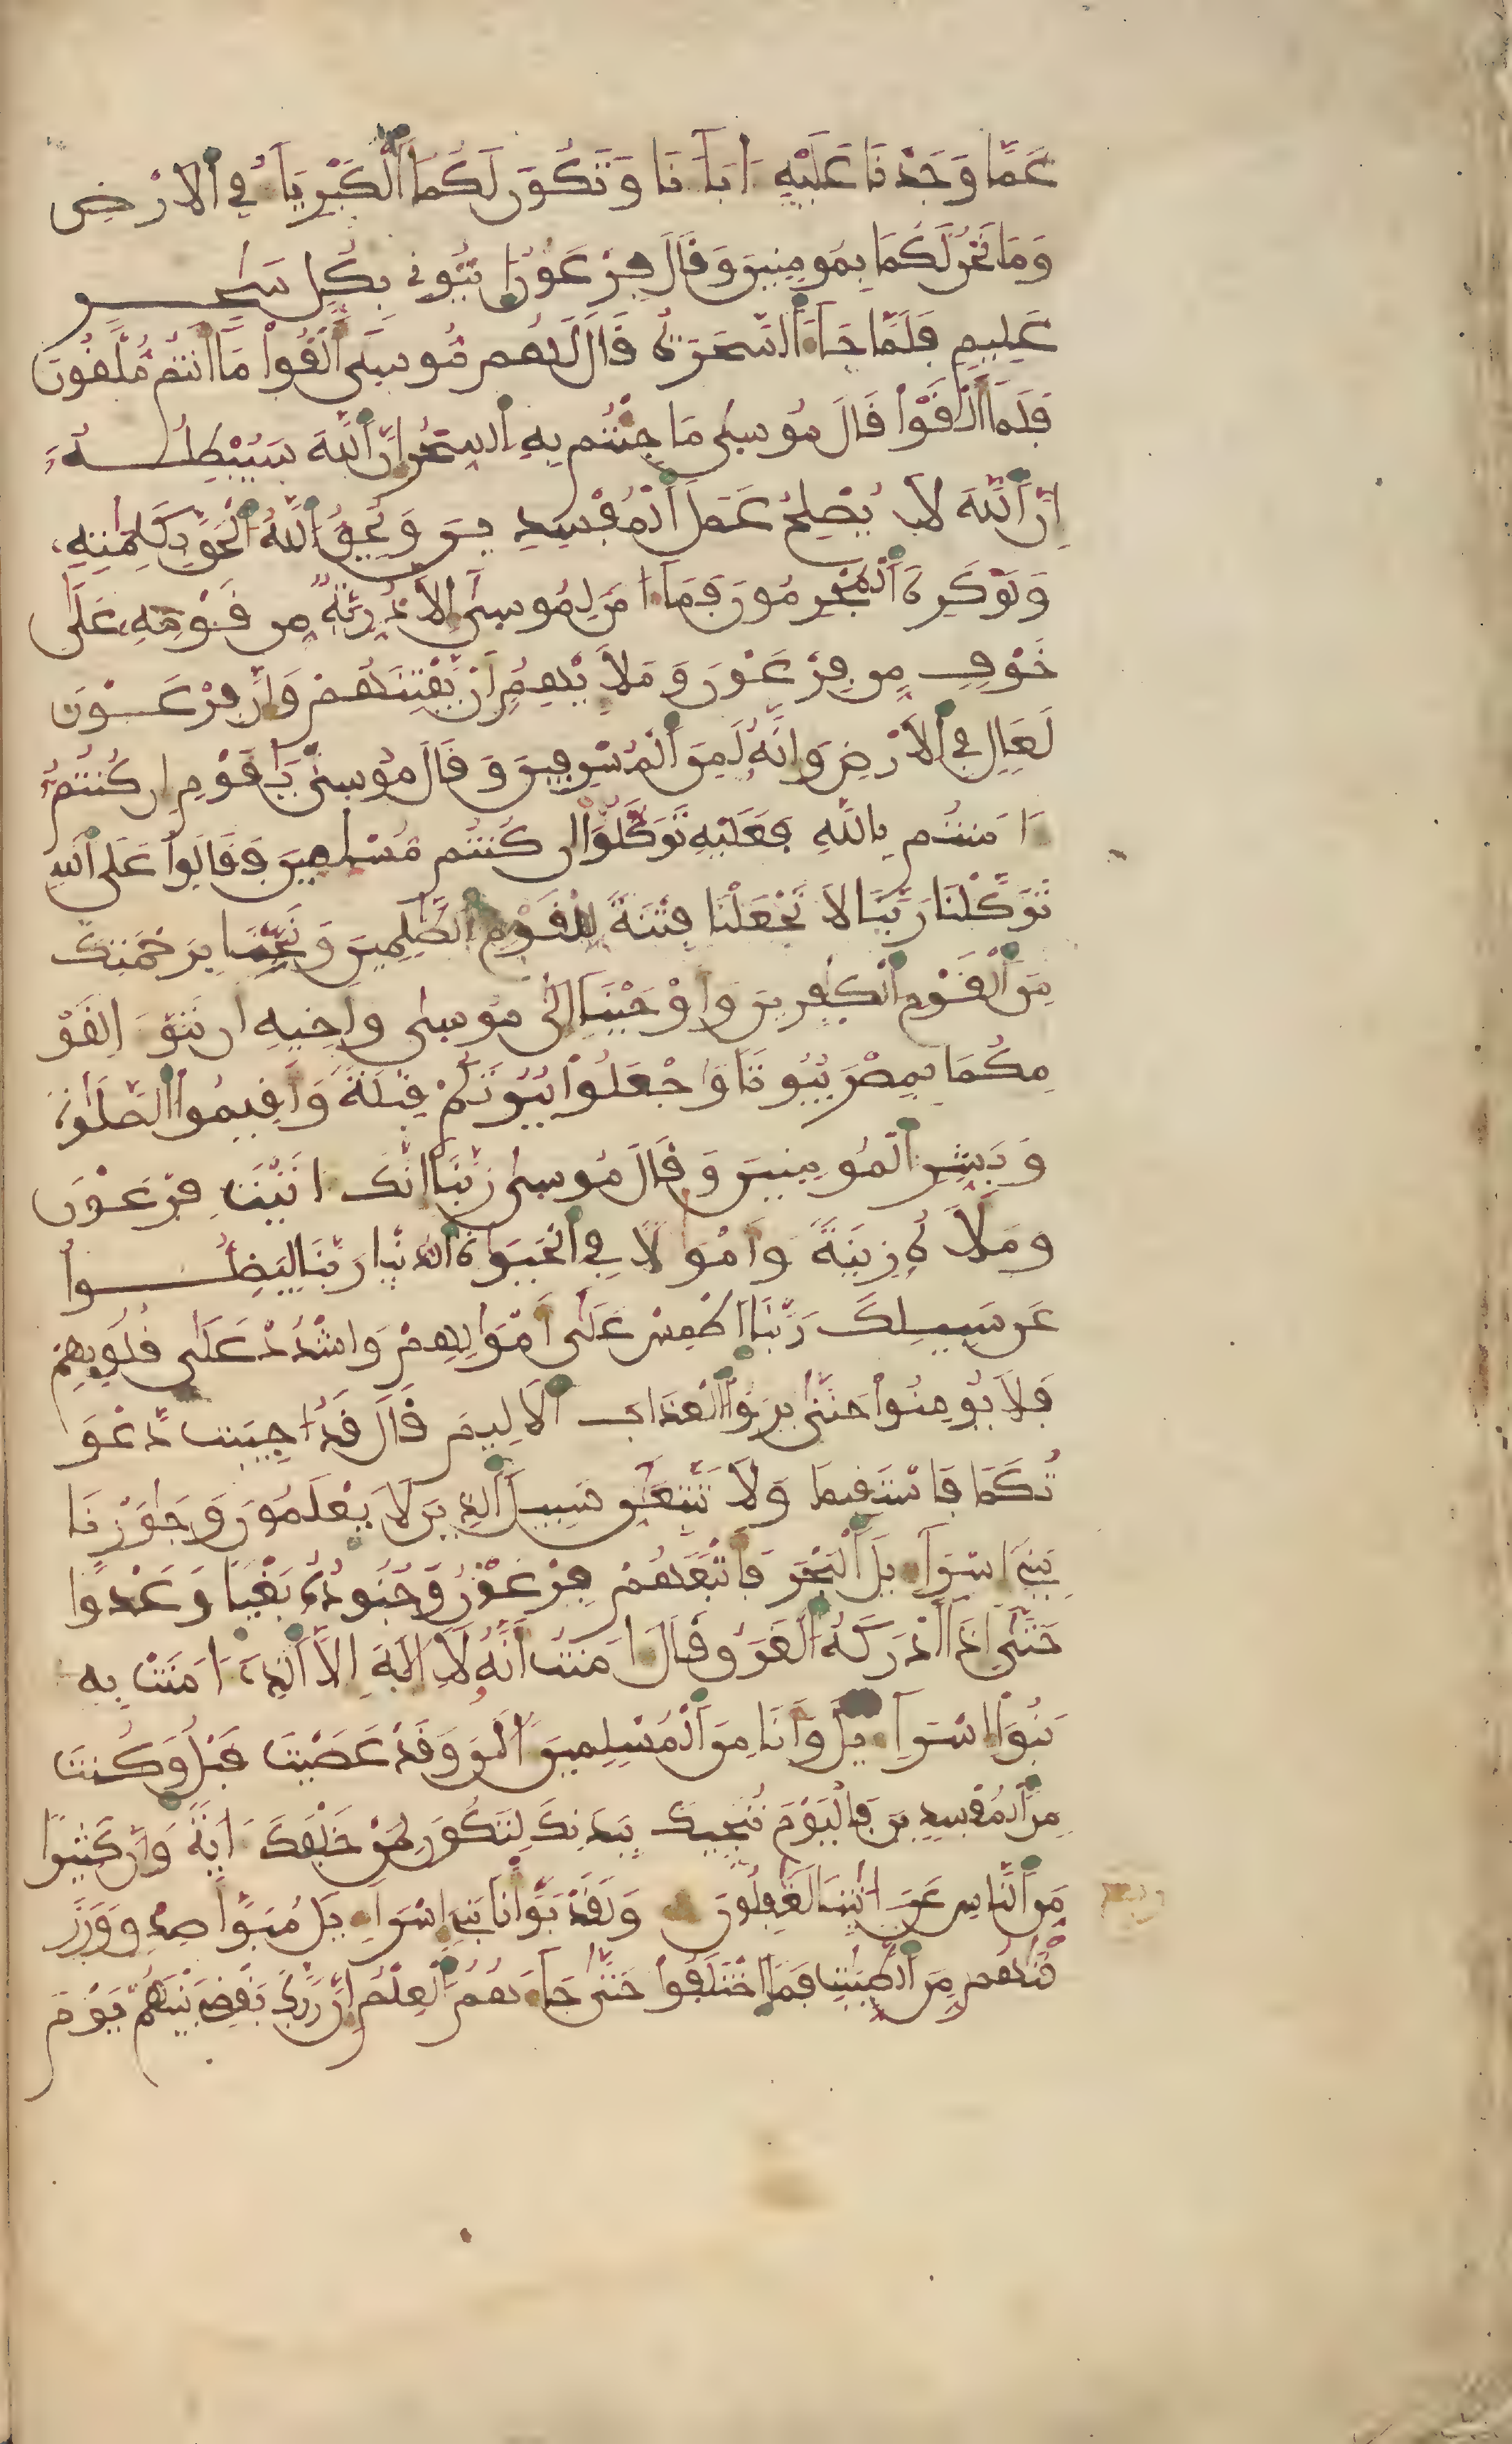 عَمَّا وَجَدْنَا عَلَيْهِ ءَابَآءَنَا وَتَكُونَ لَكُمَا ٱلْكِبْرِيَآءُ فِي ٱلَارْضِ
وَمَا نَحْنُ لَكُمَا بِمُومِنِينَ وَقَالَ فِرْعَوْنُ ٱيتُونِي بِكُلِّ سَٰحِرٍ
عَلِيمٍ فَلَمَّا جَآءَ ٱلسَّحَرَةُ قَالَ لَهُم مُّوسَىٰٓ أَلْقُواْ مَآ أَنتُم مُّلْقُونَ
فَلَمَّآ أَلْقَوْاْ قَالَ مُوسَىٰ مَا جِئْتُم بِهِ ٱلسِّحْرُ إِنَّ ٱللَّهَ سَيُبْطِلُهُۥٓ
إِنَّ ٱللَّهَ لَا يُصْلِحُ عَمَلَ ٱلْمُفْسِدِينَ وَيُحِقُّ ٱللَّهُ ٱلْحَقَّ بِكَلِمَٰتِهِۦ
وَلَوْ كَرِهَ ٱلْمُجْرِمُونَ فَمَآ ءَامَنَ لِمُوسَىٰٓ إِلَّا ذُرِّيَّةٌ مِّن قَوْمِهِۦ عَلَىٰ
خَوْفٍ مِّن فِرْعَوْنَ وَمَلَإِيْهِمُۥٓ أَنْ يَّفْتِنَهُمْ وَإِنَّ فِرْعَوْنَ
لَعَالٍ فِي ٱلَارْضِ وَإِنَّهُۥ لَمِنَ ٱلْمُسْرِفِينَ وَقَالَ مُوسَىٰ يَٰقَوْمِ إِن كُنتُمُۥٓ
ءَامَنتُم بِاللَّهِ فَعَلَيْهِ تَوَكَّلُوٓاْ إِن كُنتُم مُّسْلِمِينَ فَقَالُواْ عَلَى ٱللَّهِ
تَوَكَّلْنَا رَبَّنَا لَا تَجْعَلْنَا فِتْنَةً لِّلْقَوْمِ ٱلظَّٰلِمِينَ وَنَجِّنَا بِرَحْمَتِكَ
مِنَ ٱلْقَوْمِ ٱلْكَٰفِرِينَ وَأَوْحَيْنَآ إِلَىٰ مُوسَىٰ وَأَخِيهِ أَن تَبَوَّءَا لِقَوْ
مِكُمَا بِمِصْرَ بُيُوتًا وَاجْعَلُواْ بُيُوتَكُمْ قِبْلَةً وَأَقِيمُواْ ٱلصَّلَوٰةَ
وَبَشِّرِ ٱلْمُومِنِينَ وَقَالَ مُوسَىٰ رَبَّنَآ إِنَّكَ ءَاتَيْتَ فِرْعَوْنَ
وَمَلَأَهُۥ زِينَةً وَأَمْوَٰلًا فِي ٱلْحَيَوٰةِ ٱلدُّنْيَا رَبَّنَا لِيَضِلُّواْ
عَن سَبِيلِكَ رَبَّنَا ٱطْمِسْ عَلَىٰٓ أَمْوَٰلِهِمْ وَاشْدُدْ عَلَىٰ قُلُوبِهِمْ
فَلَا يُومِنُواْ حَتَّىٰ يَرَوُاْ ٱلْعَذَابَ ٱلَالِيمَ قَالَ قَدُ اجِيبَت دَّعْوَ
تُكُمَا فَاسْتَقِيمَا وَلَا تَتَّبِعَٰٓنِّ سَبِيلَ ٱلذِينَ لَا يَعْلَمُونَ وَجَٰوَزْنَا
بِبَنِيٓ إِسْرَآءِيلَ ٱلْبَحْرَ فَأَتْبَعَهُمْ فِرْعَوْنُ وَجُنُودُهُۥ بَغْيًا وَعَدْوًا
حَتَّىٰٓ إِذَآ أَدْرَكَهُ ٱلْغَرَقُ قَالَ ءَامَنتُ أَنَّهُۥ لَآ إِلَٰهَ إِلَّا ٱلذِيٓ ءَامَنَتْ بِهِ
بَنُوٓاْ إِسْرَآءِيلَ وَأَنَا مِنَ ٱلْمُسْلِمِينَ ءَآلَٰنَ وَقَدْ عَصَيْتَ قَبْلُ وَكُنتَ
مِنَ ٱلْمُفْسِدِينَ فَالْيَوْمَ نُنَجِّيكَ بِبَدَنِكَ لِتَكُونَ لِمَنْ خَلْفَكَ ءَايَةً وَإِنَّ كَثِيرًا
مِّنَ ٱلنَّاسِ عَنَ ءَايَٰتِنَا لَغَٰفِلُونَ وَلَقَدْ بَوَّأْنَا بَنِيٓ إِسْرَآءِيلَ مُبَوَّأَ صِدْقٍ وَرَزَ
قْنَٰهُم مِّنَ ٱلطَّيِّبَٰتِ فَمَا ٱخْتَلَفُواْ حَتَّىٰ جَآءَهُمُ ٱلْعِلْمُ إِنَّ رَبَّكَ يَقْضِي بَيْنَهُمْ يَوْمَ